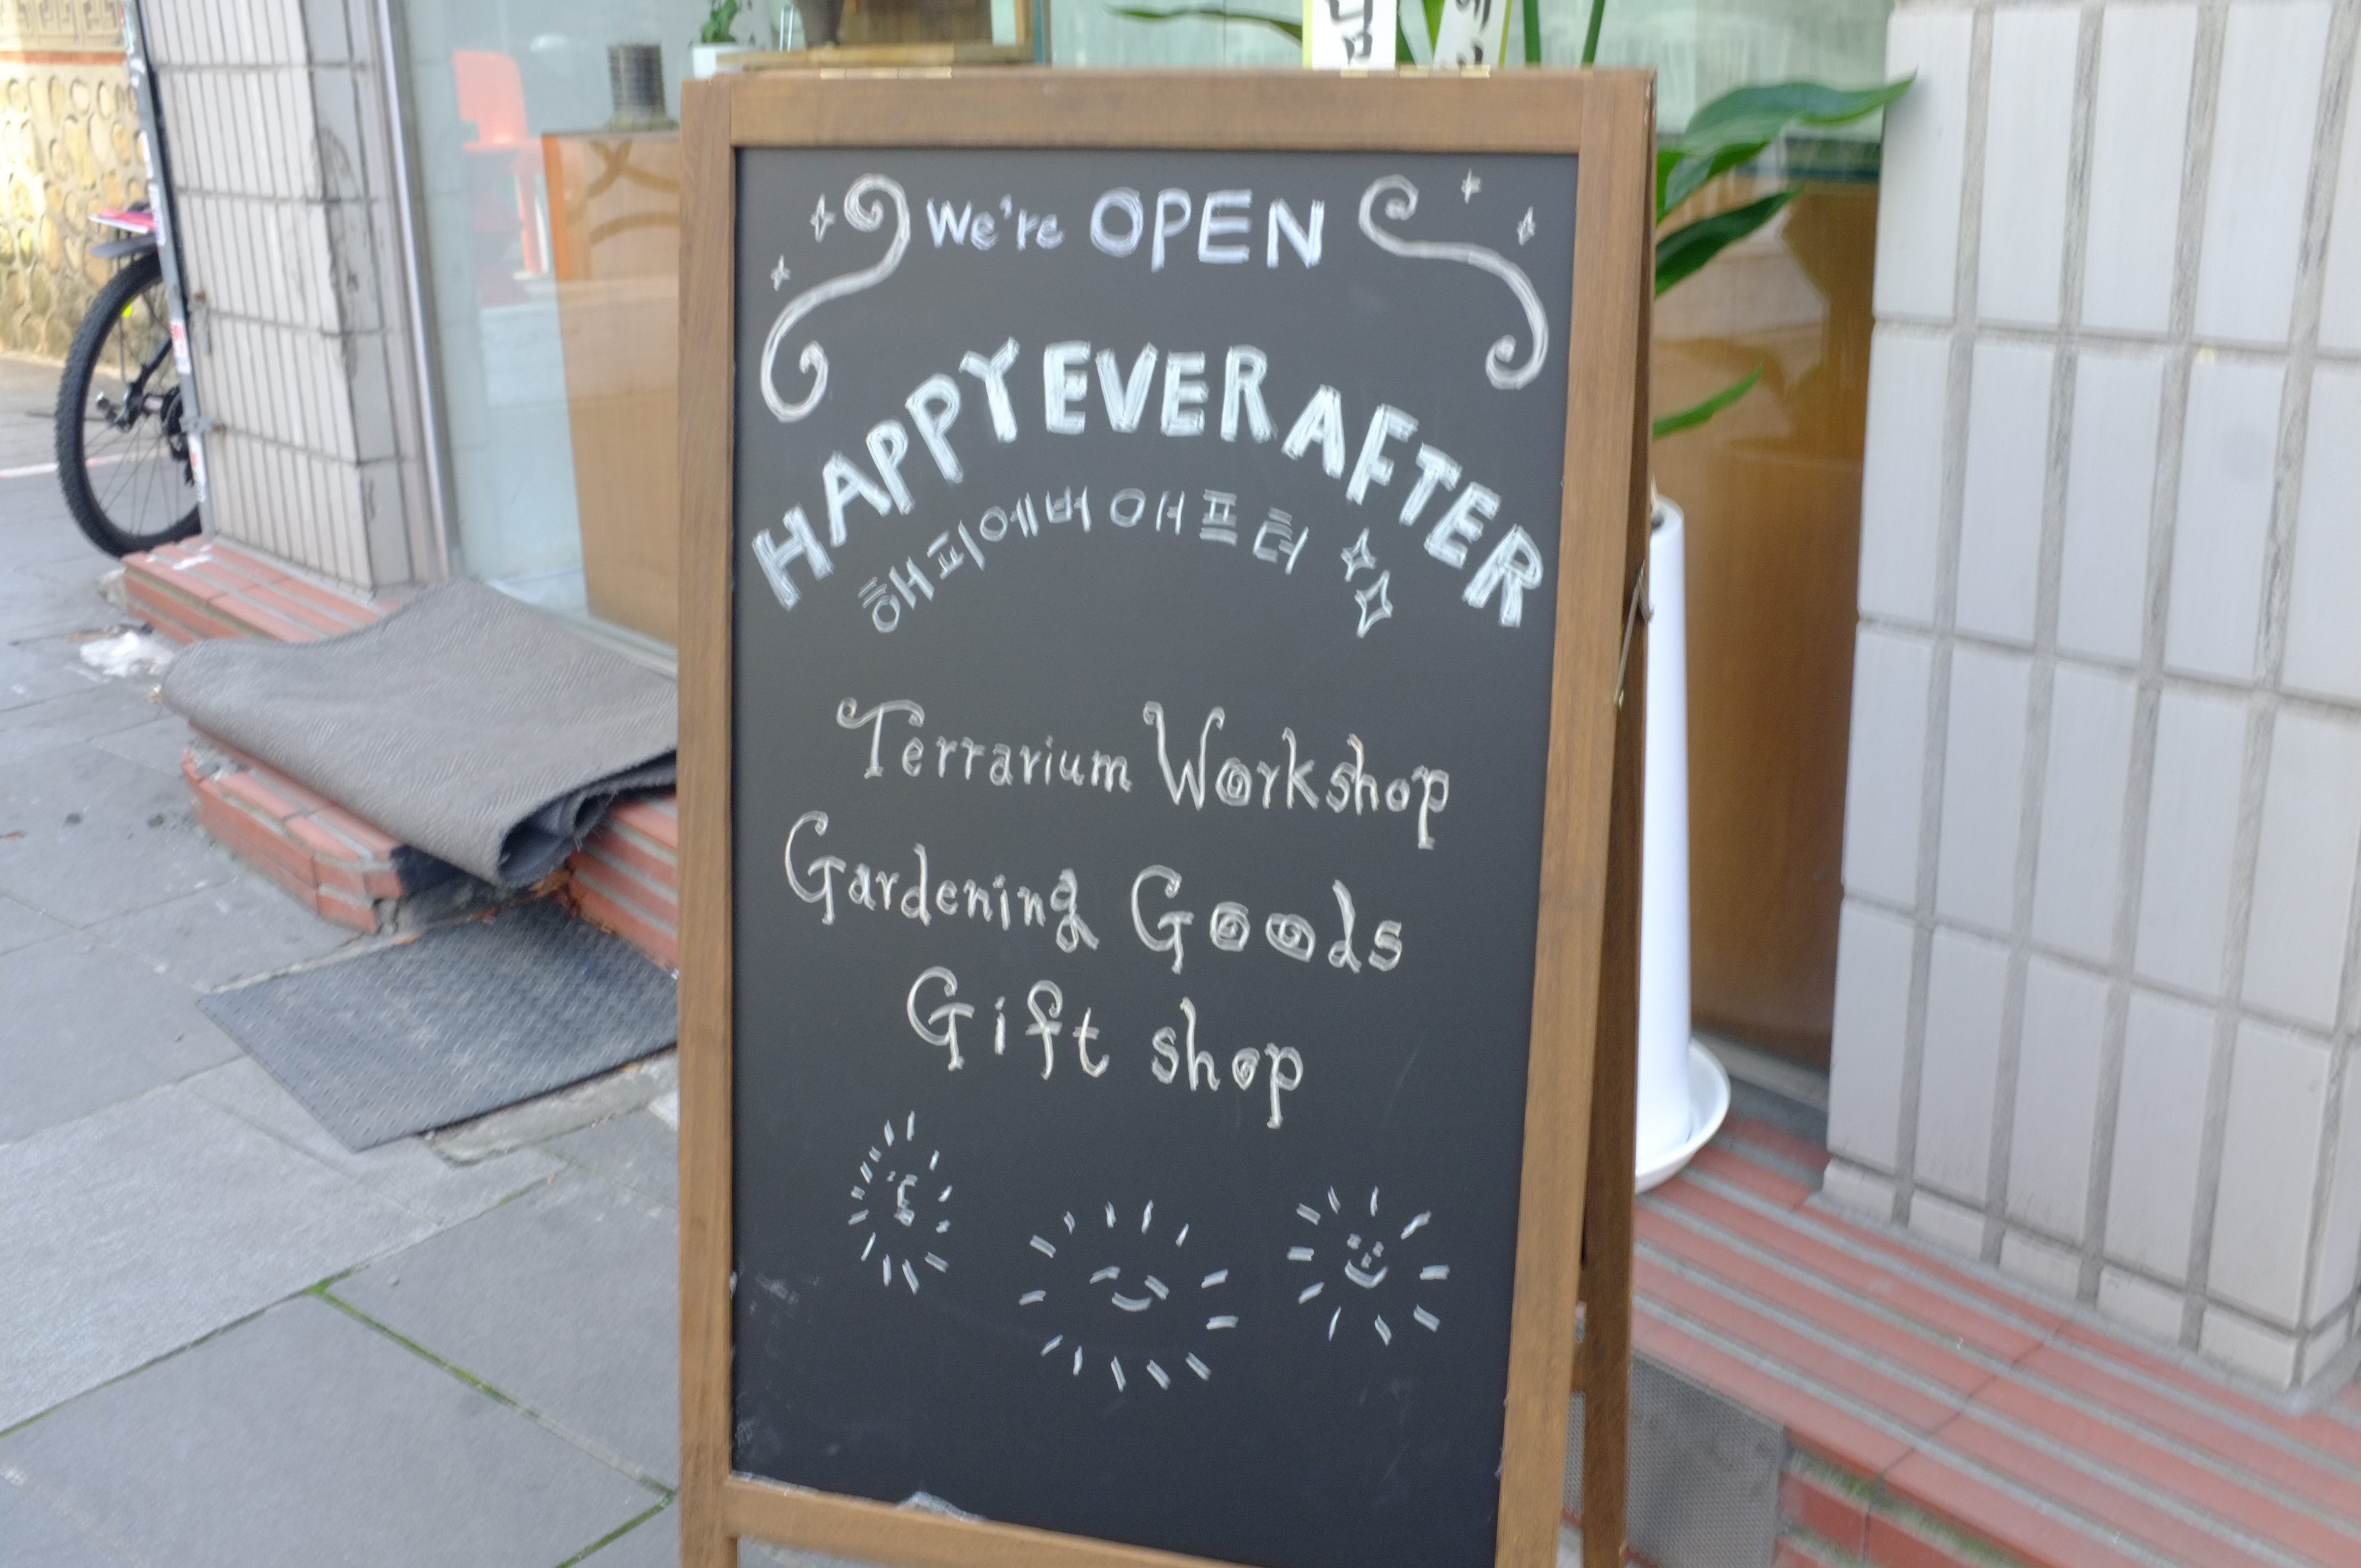 We're OPEN
HAPPY EVER AFTER
해피에버 애프터
Terrarium Workshop
Gardening Goods
Gift shop